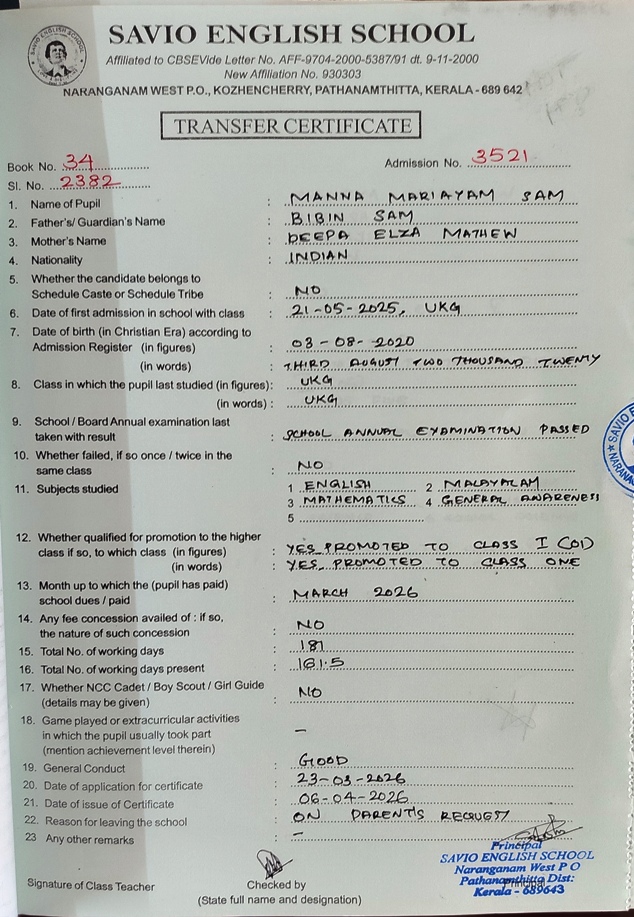 SAVIO ENGLISH SCHOOL
Affiliated to CBSEVide Letter No. AFF-9704-2000-5387/91 dt. 9-11-2000
New Affiliation No. 930303
NARANGANAM WEST P.O., KOZHENCHERRY, PATHANAMTHITTA, KERALA - 689 642
TRANSFER CERTIFICATE
Book No. 34
Admission No. 3521
Sl. No. 2382
1. Name of Pupil : MANNA MARIAYAM SAM
2. Father's/ Guardian's Name : BIBIN SAM
3. Mother's Name : DEEPA ELZA MATHEW
4. Nationality : INDIAN
5. Whether the candidate belongs to
Schedule Caste or Schedule Tribe : NO
6. Date of first admission in school with class : 21-05-2025, UKG
7. Date of birth (in Christian Era) according to
Admission Register (in figures) : 03-08-2020
(in words) : THIRD AUGUST TWO THOUSAND TWENTY
8. Class in which the pupil last studied (in figures): UKG
(in words) : UKG
9. School / Board Annual examination last
taken with result : SCHOOL ANNUAL EXAMINATION PASSED
10. Whether failed, if so once / twice in the
same class : NO
11. Subjects studied : 1 ENGLISH 2 MALAYALAM
3 MATHEMATICS 4 GENERAL AWARENESS
5
12. Whether qualified for promotion to the higher
class if so, to which class (in figures) : YES PROMOTED TO CLASS I (01)
(in words) : YES PROMOTED TO CLASS ONE
13. Month up to which the (pupil has paid)
school dues / paid : MARCH 2026
14. Any fee concession availed of : if so,
the nature of such concession : NO
15. Total No. of working days : 187
16. Total No. of working days present : 161.5
17. Whether NCC Cadet / Boy Scout / Girl Guide
(details may be given) : NO
18. Game played or extracurricular activities
in which the pupil usually took part
(mention achievement level therein) : –
19. General Conduct : GOOD
20. Date of application for certificate : 23-03-2026
21. Date of issue of Certificate : 06-04-2026
22. Reason for leaving the school : ON PARENT'S REQUEST
23 Any other remarks : –
Signature of Class Teacher
Checked by
(State full name and designation)
Principal
SAVIO ENGLISH SCHOOL
Naranganam West P O
Pathanamthitta Dist:
Kerala - 689643
Principal